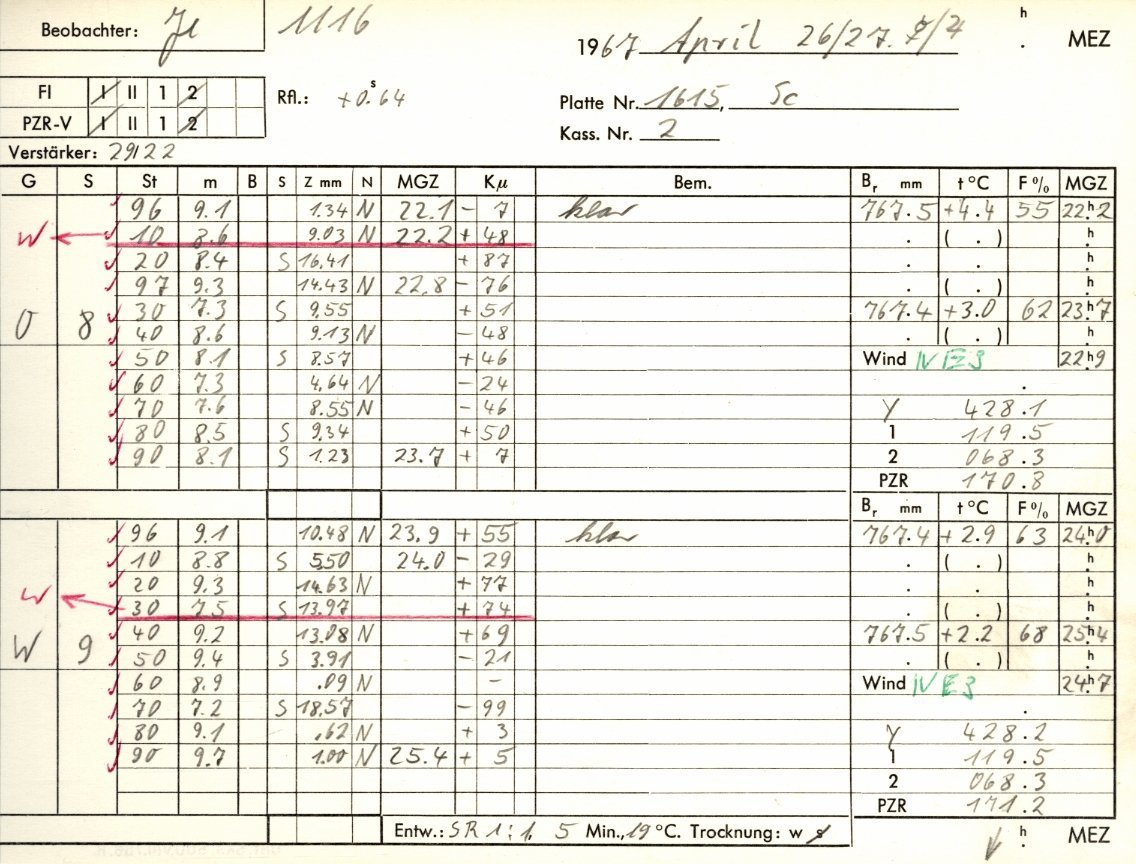 Beobachter: Je 1116
1967 April 26/27. h . MEZ
FI I II 1 2 Rfl.: +0.ˢ64
PZR-V I II 1 2 Platte Nr. 1615, Sc
Kass. Nr. 2
Verstärker: 29122
G S St m B S Z mm N MGZ Kμ Bem. Br mm t°C F% MGZ
96 9.1 1.34 N 22.1 - 7 klar 767.5 +4.4 55 22h2
W 10 8.6 9.03 N 22.2 + 48 . ( . ) h
20 8.4 S 16.41 + 87 . . h
97 9.3 14.43 N 22.8 - 76 . ( . ) h
O 8 30 7.3 S 9.55 + 51 767.4 +3.0 62 23h7
40 8.6 9.13 N - 48 . ( . ) h
50 8.1 S 8.57 + 46 Wind NE3 22h9
60 7.3 4.64 N - 24 .
70 7.6 8.55 N - 46 Y 428.1
80 8.5 S 9.34 + 50 1 119.5
90 8.1 S 1.23 23.7 + 7 2 068.3
PZR 170.8
Br mm t°C F% MGZ
96 9.1 10.48 N 23.9 + 55 klar 767.4 +2.9 63 24h0
10 8.8 S 5.50 24.0 - 29 . ( . ) h
20 9.3 14.63 N + 77 . . h
W 30 7.5 S 13.97 + 74 . ( . ) h
W 9 40 9.2 13.08 N + 69 767.5 +2.2 68 25h4
50 9.4 S 3.91 - 21 . ( . ) h
60 8.9 .09 N - Wind NE3 24h7
70 7.2 S 18.57 - 99 .
80 9.1 .62 N + 3 Y 428.2
90 9.7 1.00 N 25.4 + 5 1 119.5
2 068.3
PZR 171.2
Entw.: SR 1:1. 5 Min., 19 °C. Trocknung: w h . MEZ